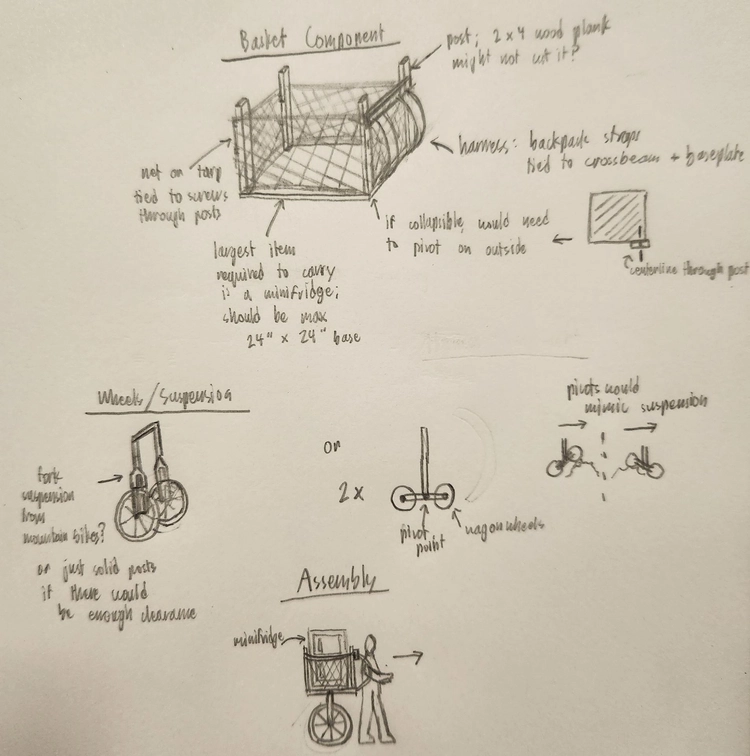 Basket Component
post; 2 x 4 wood plank
might not cut it?
net or tarp
tied to screws
through posts
harness: backpack straps
tied to crossbeam + baseplate
if collapsible, would need
to pivot on outside
centerline through post
largest item
required to carry
is a minifridge;
should be max
24" x 24" base
Wheels/Suspension
fork
suspension
from
mountain bikes?
or just solid posts
if there would
be enough clearance
or
2 x
pivot
point
wagon wheels
pivots would
mimic suspension
Assembly
minifridge